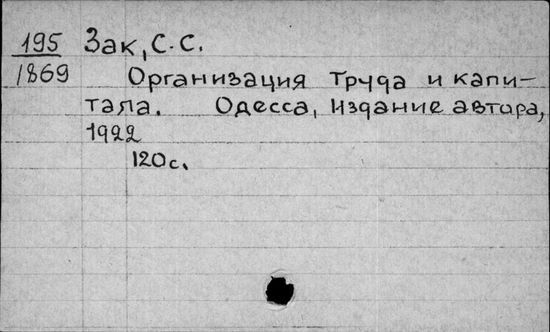 195 Зак, С.С.
1869 Организация труда и капи-
тала. Одесса, издание автора,
1922
120с.